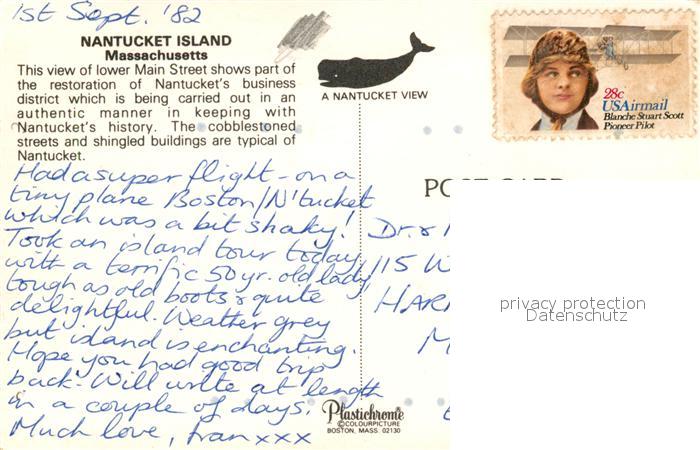 1st Sept. '82
NANTUCKET ISLAND
Massachusetts
This view of lower Main Street shows part of
the restoration of Nantucket's business
district which is being carried out in an
authentic manner in keeping with
Nantucket's history. The cobblestoned
streets and shingled buildings are typical of
Nantucket.
A NANTUCKET VIEW
28c
USAirmail
Blanche Stuart Scott
Pioneer Pilot
Had a super flight - on a
tiny plane Boston/N'tucket
which was a bit shaky!
Took an island tour today
with a terrific 50 yr. old lady
tough as old boots & quite
delightful. Weather grey
but island is enchanting.
Hope you had good trip
back. Will write at length
in a couple of days.
Much love, Fran xxx
POST CARD
Dr. &
115 W
HAR
M
privacy protection
Datenschutz
Plastichrome
©COLOURPICTURE
BOSTON, MASS. 02130